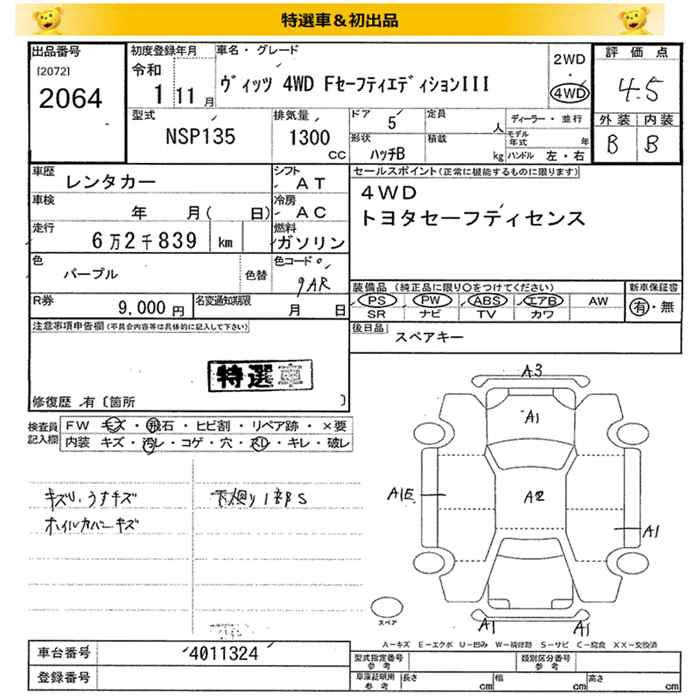 特選車＆初出品
出品番号
[2072]
2064
初度登録年月
令和
1 11 月
車名・グレード
ヴィッツ 4WD FセーフティエディションIII
2WD
・
4WD
評価点
4.5
外装 内装
B B
型式
NSP135
排気量
1300
CC
ドア 5
形状
ハッチB
定員
人
積載
kg
ディーラー・並行
モデル年式 年
ハンドル 左・右
車歴
レンタカー
シフト
AT
車検
年 月( 日)
冷房
AC
走行
6万2千839 km
燃料
ガソリン
色
パープル
色替
色コード
9AR
R券
9,000 円
名変通知期限
月 日
セールスポイント(正常に機能するものに限ります)
4WD
トヨタセーフティセンス
装備品 (純正品に限り○をつけてください)
PS PW ABS エアB AW
SR ナビ TV カワ
新車保証書
有・無
後日品
スペアキー
注意事項申告欄(不具合内容等は具体的に記入して下さい)
特選
修復歴 有〔箇所 〕
検査員記入欄
FW キズ・飛石・ヒビ割・リペア跡・×要
内装 キズ・汚レ・コゲ・穴・スレ・キレ・破レ
キズU、うすキズ
ホイルカバーキズ
下廻り1部S
A3
A1
A1E
A2
A1
A1 A1
スペア
A－キズ E－エクボ U－凹み W－補修跡 S－サビ C－腐食 XX－交換済
車台番号
4011324
登録番号
型式指定番号
参考
類別区分番号
参考
車庫証明用
参考
長さ cm
幅 cm
高さ cm